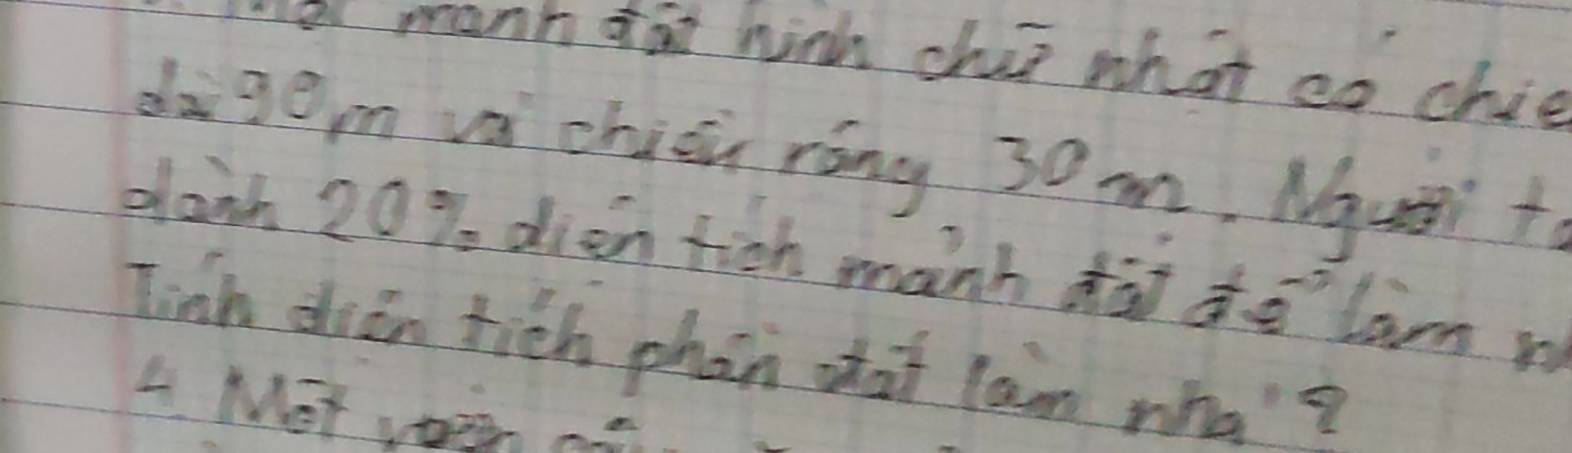 mảnh đất hình chữ nhật có chiề
dài 90m và chiều rộng 30 m. Người ta
dành 20% diện tích mảnh đất để làm nh
Tính diện tích phần đất làm nhà?
4. Một vườn